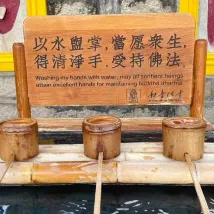 以水盥掌，當愿衆生，
得清淨手．受持佛法．
Washing my hands with water, may all sentient beings
attain excellent hands for maintaining buddha dharma